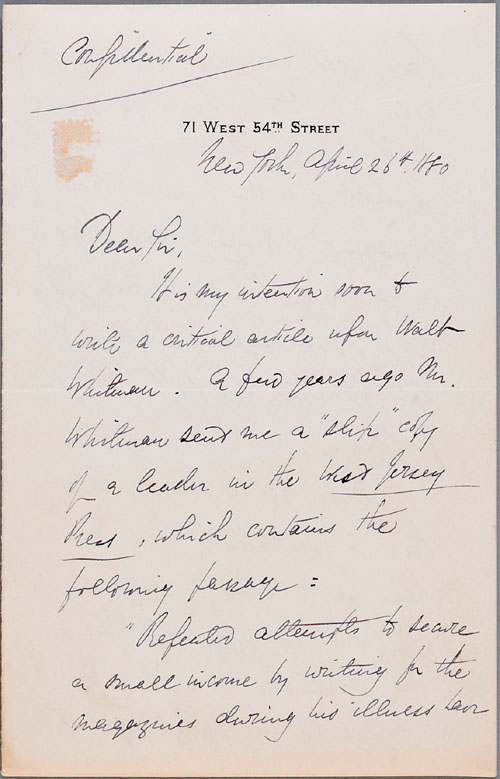 Confidential
71 West 54TH Street
New York, April 26th. 1880
Dear Sir,
It is my intention soon to
write a critical article upon Walt
Whitman. A few years ago Mr.
Whitman sent me a "slip" copy
of a leader in the West Jersey
Press, which contains the
following passage:
"Repeated attempts to secure
a small income by writing for the
magazines during his illness have